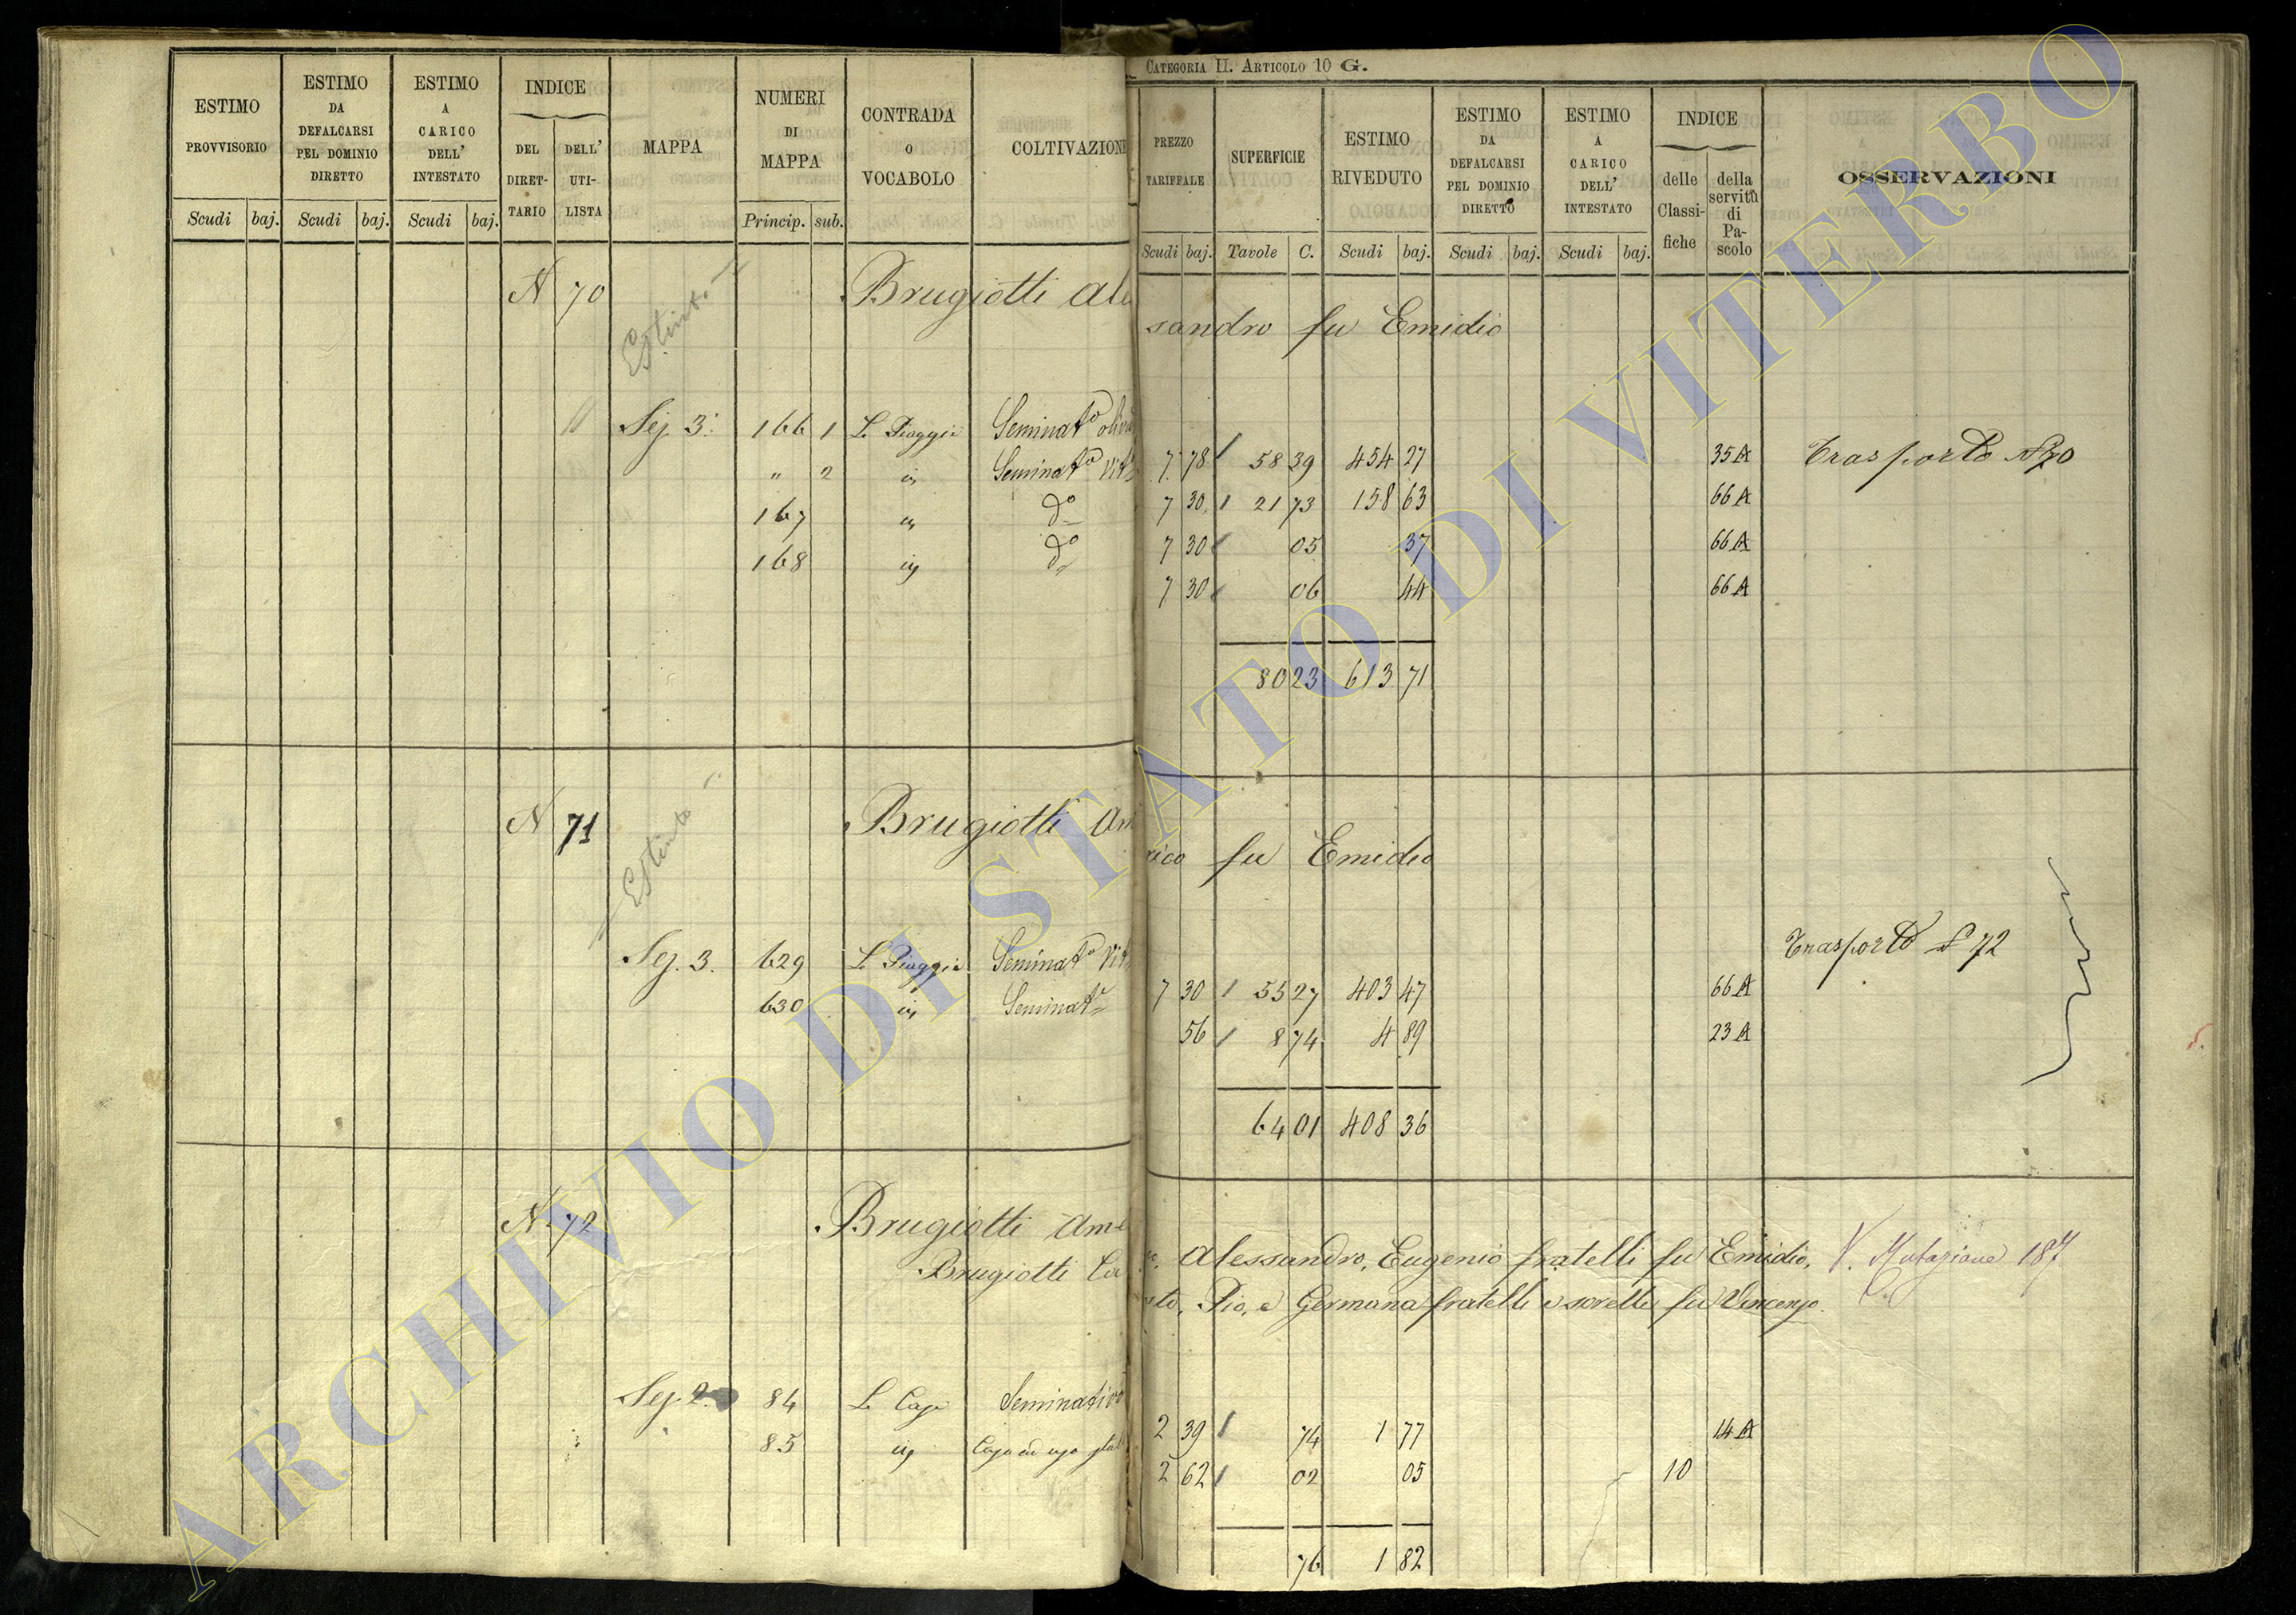 CATEGORIA II. ARTICOLO 10 G.
ESTIMO PROVVISORIO Scudi baj.
ESTIMO DA DEFALCARSI PEL DOMINIO DIRETTO Scudi baj.
ESTIMO A CARICO DELL' INTESTATO Scudi baj.
INDICE DEL DIRETTARIO DELL' UTILISTA
MAPPA
NUMERI DI MAPPA Princip. sub.
CONTRADA O VOCABOLO
COLTIVAZIONE
PREZZO TARIFFALE Scudi baj.
SUPERFICIE Tavole C.
ESTIMO RIVEDUTO Scudi baj.
ESTIMO DA DEFALCARSI PEL DOMINIO DIRETTO Scudi baj.
ESTIMO A CARICO DELL' INTESTATO Scudi baj.
INDICE delle Classifiche della servitù di Pascolo
OSSERVAZIONI
N 70 Brugiotti Ales
sandro fu Emidio
Estinto
Sez. 3. 166 1 Le Piaggie Seminato 7 78 58 39 454 27 35 A Trasporto
" 2 Seminato Vit 7 30 21 73 158 63 66 A
167 do 7 30 05 37 66 A
168 do 7 30 06 44 66 A
80 23 613 71
N 71 Brugiotti Am
rico fu Emidio
Estinto
Sez. 3. 629 Le Piaggie Seminato Vit 7 30 55 27 403 47 66 A Trasporto 72
630 Seminat 56 8 74 4 89 23 A
64 01 408 36
N. 72 Brugiotti Ame
Alessandro, Eugenio fratelli fu Emidio. V. Mutazione 187
Brugiotti
Pio, e Germana fratelli e sorelle fu Vincenzo.
Sez. 2. 84 Le Case Seminativo 2 39 74 1 77 14 A
85 Casa ad uso stal 2 62 02 05 10
76 1 82
ARCHIVIO DI STATO DI VITERBO